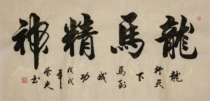 龍馬精神
龍
行天
下
馬到
成
功
戊戌
年